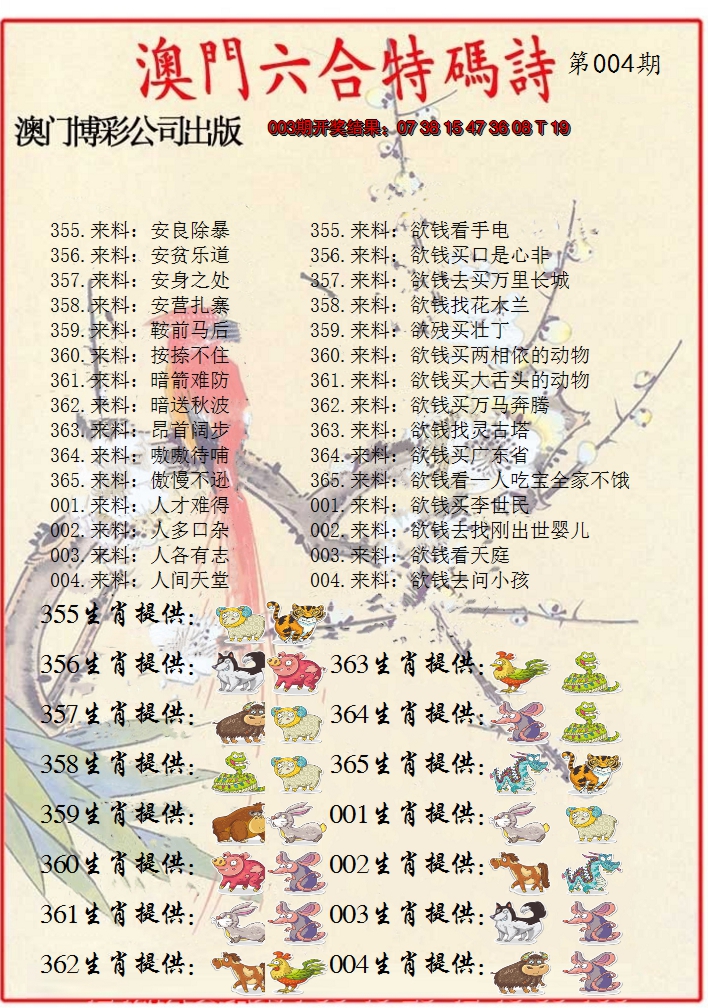 澳門六合特碼詩 第004期
澳门博彩公司出版 003期开奖结果：07 38 15 47 36 08 T 19
355.来料：安良除暴 355.来料：欲钱看手电
356.来料：安贫乐道 356.来料：欲钱买口是心非
357.来料：安身之处 357.来料：欲钱去买万里长城
358.来料：安营扎寨 358.来料：欲钱找花木兰
359.来料：鞍前马后 359.来料：欲残买壮丁
360.来料：按捺不住 360.来料：欲钱买两相依的动物
361.来料：暗箭难防 361.来料：欲钱买大舌头的动物
362.来料：暗送秋波 362.来料：欲钱买万马奔腾
363.来料：昂首阔步 363.来料：欲钱找灵古塔
364.来料：嗷嗷待哺 364.来料：欲钱买广东省
365.来料：傲慢不逊 365.来料：欲钱看一人吃宝全家不饿
001.来料：人才难得 001.来料：欲钱买李世民
002.来料：人多口杂 002.来料：欲钱去找刚出世婴儿
003.来料：人各有志 003.来料：欲钱看天庭
004.来料：人间天堂 004.来料：欲钱去问小孩
355生肖提供：
356生肖提供： 363生肖提供：
357生肖提供： 364生肖提供：
358生肖提供： 365生肖提供：
359生肖提供： 001生肖提供：
360生肖提供： 002生肖提供：
361生肖提供： 003生肖提供：
362生肖提供： 004生肖提供：